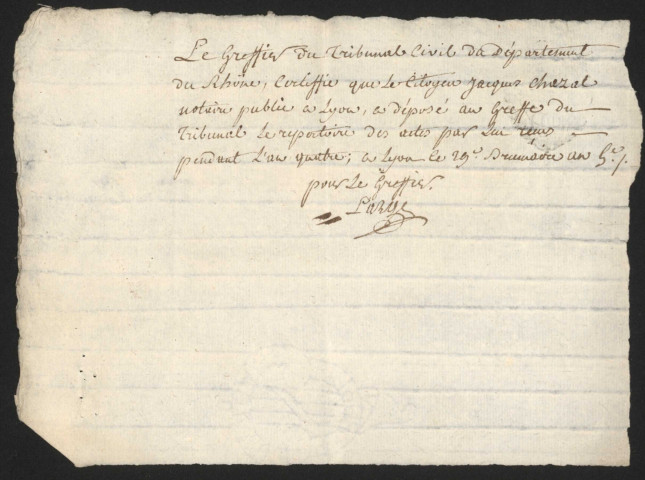 Le Greffier du Tribunal Civil du Département
du Rhône, Certiffie que Le Citoyen Jacques Chazal
notaire public a Lyon, a déposé au Greffe du
Tribunal Le repertoire des actes par Lui reçus
pendant L'an quatre; a Lyon le 29e Brumaire an 5e./.
pour Le Greffier.